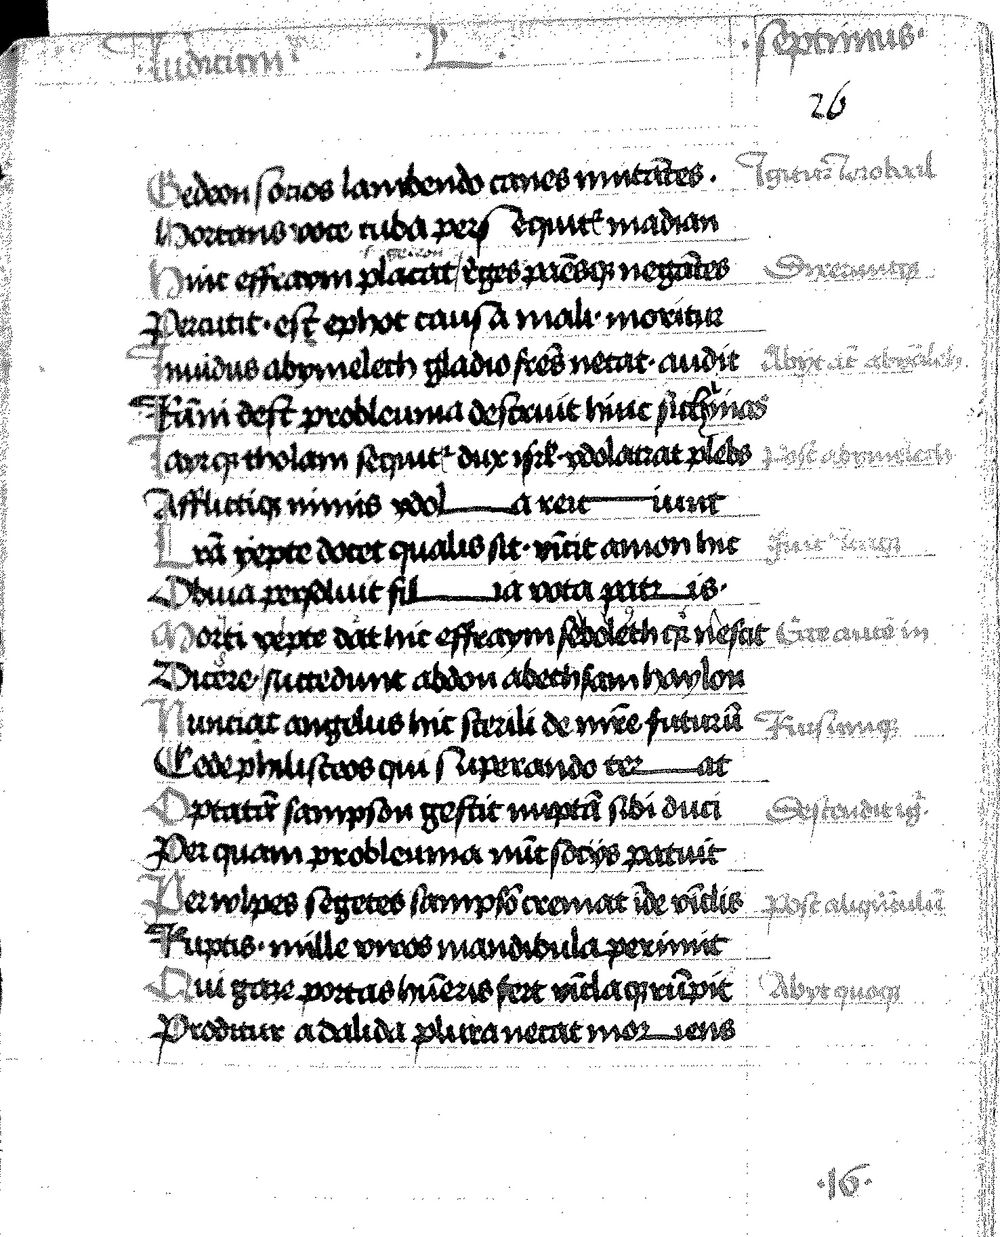 Iudicum · L · septimus ·
26
Gedeon socios lambendo canes imitātes . Igitur Ierobaal
Hortans voce tuba persequitr madian
Hinc effraym placat reges pmēsq negātes Dixeruntq
Percutit · est ephot causa mali · moritur
Inuidus abymelech gladio frēs necat · audit Abijt at abymelech
Fūmi dest probleuma destruit hinc sichymas
Iayrq tholam sequitr dux isrl · ydolatrat plebs Post abymelech
Afflictiq nimis ydol a reit iunt
Lrā yepte docet qualis sit · vīcit amon hic Fuit
Obuia persoluit fil ia vota patr is ·
Morti yepte dat hic effraym seboleth qr nescit Ecce autē in
Dicere / succedunt abdon abethsam haylon
Nunciat angelus hic sterili de mrē futurū Rursumq
Cede philisteos qui superando ter at
Optatā sampson gestit nuptā sibi duci Descendit igr
Per quam probleuma nūc socijs patuit
Per wlpes segetes sampsō cremat īde vīclis Post aliqūtulū
Ruptis · mille viros mandibula perimit
Qui gaze portas hūeris fert vīclaq rūpit Abijt quoq
Proditur a dalida plura necat mor iens
· 16 ·